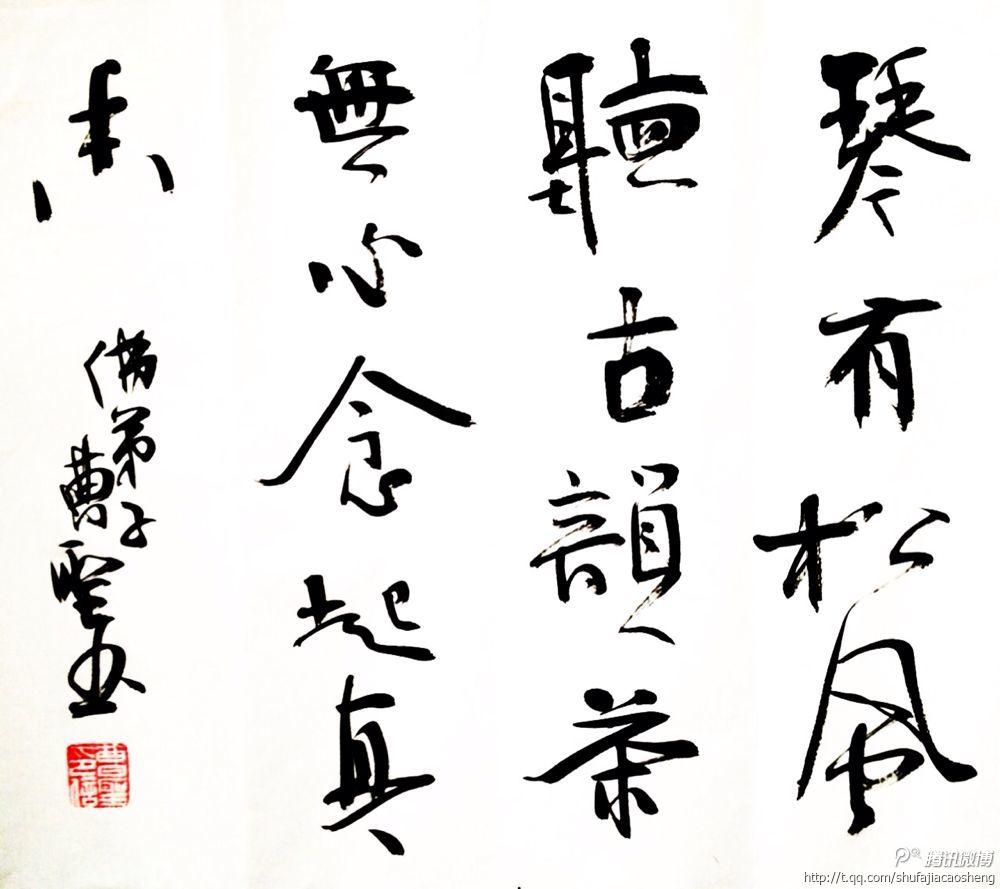 琴有松風
聽古韻茶
無心念起真
香
佛弟子
曹聖書
曹聖印信
腾讯微博
http://t.qq.com/shufajiacaosheng